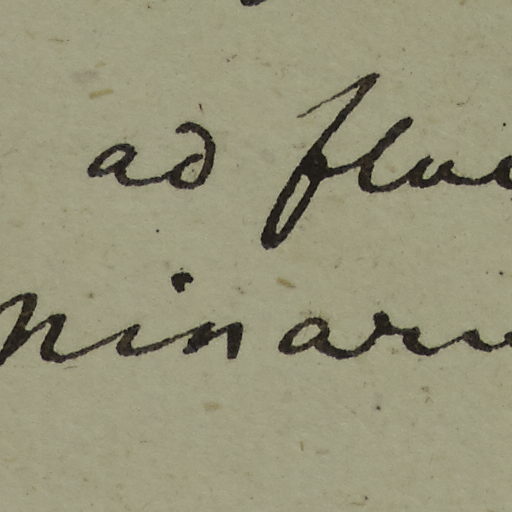 ad fluv
ninaru